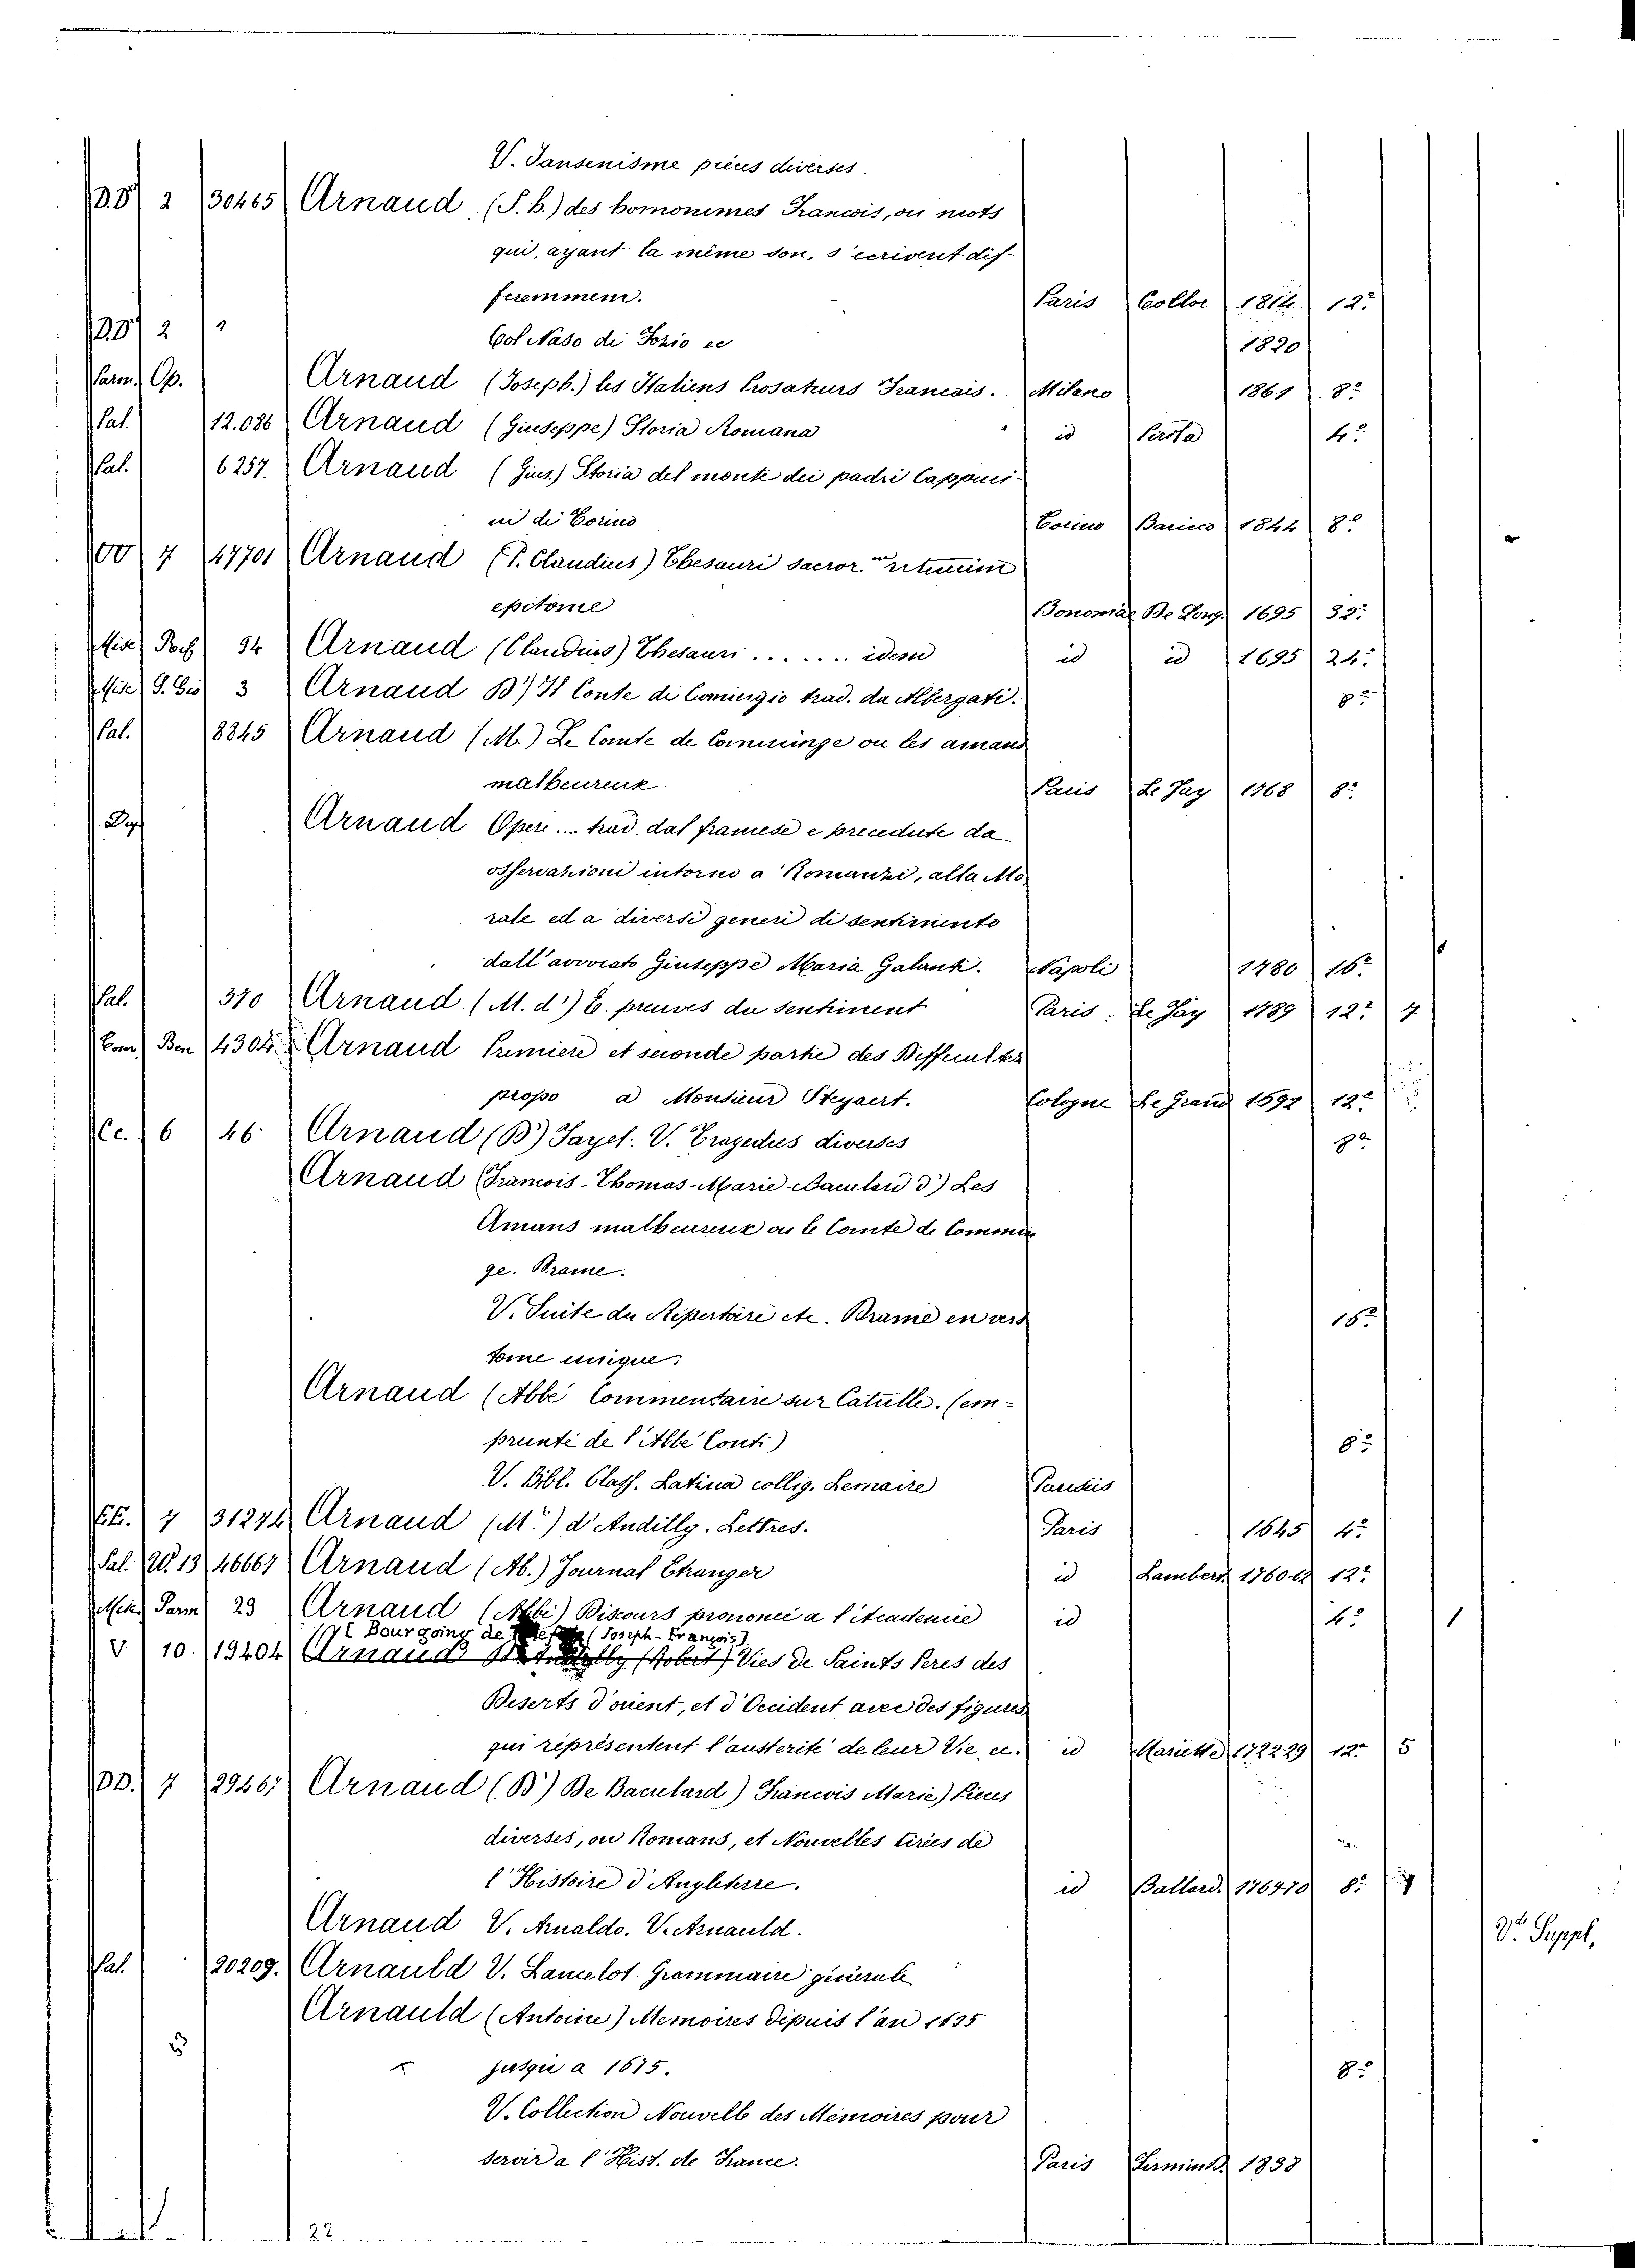 V. Jansenisme pièces diverses.
DD 2 30465 Arnaud (J. B.) des homonimes Francois, ou mots
qui, ayant la même son, s'ecrivent dif-
feremment. Paris Collor 1814 12º
DD 2
Col Naso di Sozio ec 1820
Parm. Op. Arnaud (Joseph.) les Italiens Prosateurs Francais. Milano 1861 8º
Pal. 12.086 Arnaud (Giuseppe) Storia Romana id Pirota 4º
Pal. 6257. Arnaud (Gius.) Storia del monte dei padri Cappuci-
ni di Torino Torino Baricco 1844 8º
OO 7 47701 Arnaud (P. Claudius) Thesauri sacror.m rituum
epitome Bononiae De Long. 1695 32º
Misc. Boch 94 Arnaud (Claudius) Thesauri ...... idem id id 1695 24º
Misc. G. Gio 3 Arnaud D') Il Conte di Comingio trad. da Albergati. 8º
Pal. 8845 Arnaud (M.) Le Comte de Comminge ou les amans
malheureux Paris Le Jay 1768 8º
Dep Arnaud Opere.... trad. dal francese e precedute da
osservazioni intorno a' Romanzi, alla Mo-
rale ed a diversi generi di sentimento
dall'avvocato Giuseppe Maria Galanti. Napoli 1780 16º
Pal. 370 Arnaud (M. d') E. preuves du sentiment Paris - Le Jay 1789 12º 7
Com. Ben 4304. Arnaud Premiere et seconde partie des Difficultés
propo a Monsieur Steyaert. Cologne Le Grand 1692 12º
Cc. 6 46 Arnaud (D') Fayel. V. Tragedies diverses 8º
Arnaud (Francois-Thomas-Marie Baculard d') Les
Amans malheureux ou le Comte de Commin
ge. Drame.
V. Suite du Répertoire etc. Drame en vers 16º
tome unique.
Arnaud (Abbé Commentaire sur Catulle. (em-
prunté de l'Abbé Conti) 8º
V. Bibl. Class. Latina collig. Lemaire Parisiis
EE. 7 31274 Arnaud (M.r) d'Andilly. Lettres. Paris 1645 4º
Pal. W. 13 46661 Arnaud (Ab.) Journal Etranger id Lambert 1760-62 12º
Misc. Parm 29 Arnaud (Abbé) Discours prononcé a l'Academie id 4º 1
[Bourgoing de (Joseph-François)]
V 10. 19404 Arnaud (Robert) Vies de Saints Peres des
Deserts d'orient, et d'Occident avec des figures
qui représentent l'austerité de leur Vie, ec. id Mariette 1722.29 12º 5
DD. 7 29467 Arnaud (D') De Baculard) Francois Marie) Pieces
diverses, ou Romans, et Nouvelles tirées de
l'Histoire d'Angleterre. id Ballard. 1767.70 8º
Arnaud V. Arnaldo. V. Arnauld. V.e Suppl.
Pal. 20209. Arnauld V. Lancelot. Grammaire générale
Arnauld (Antoine) Memoires dépuis l'an 1635
jusqu'a 1675. 8º
V. Collection Nouvelle des Mémoires pour
servir a l'Hist. de France. Paris Firmin D. 1838
22